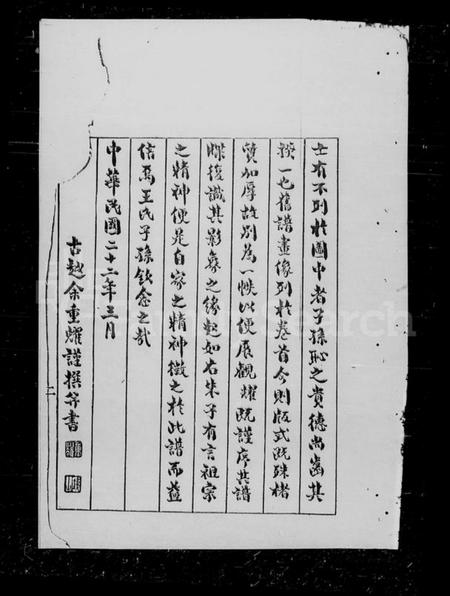 士有不列於圖中者子孫恥之貴德尚齒其
揆一也舊譜畫像列於卷首今則版式既殊楮
質加厚故別為一帙以便展觀耀既謹序其譜
牒復識其影象之緣起如右朱子有言祖宗
之精神便是自家之精神徵之於此譜而益
信焉王氏子孫欽念之哉
中華民國二十二年三月
古越余重耀謹撰并書
二